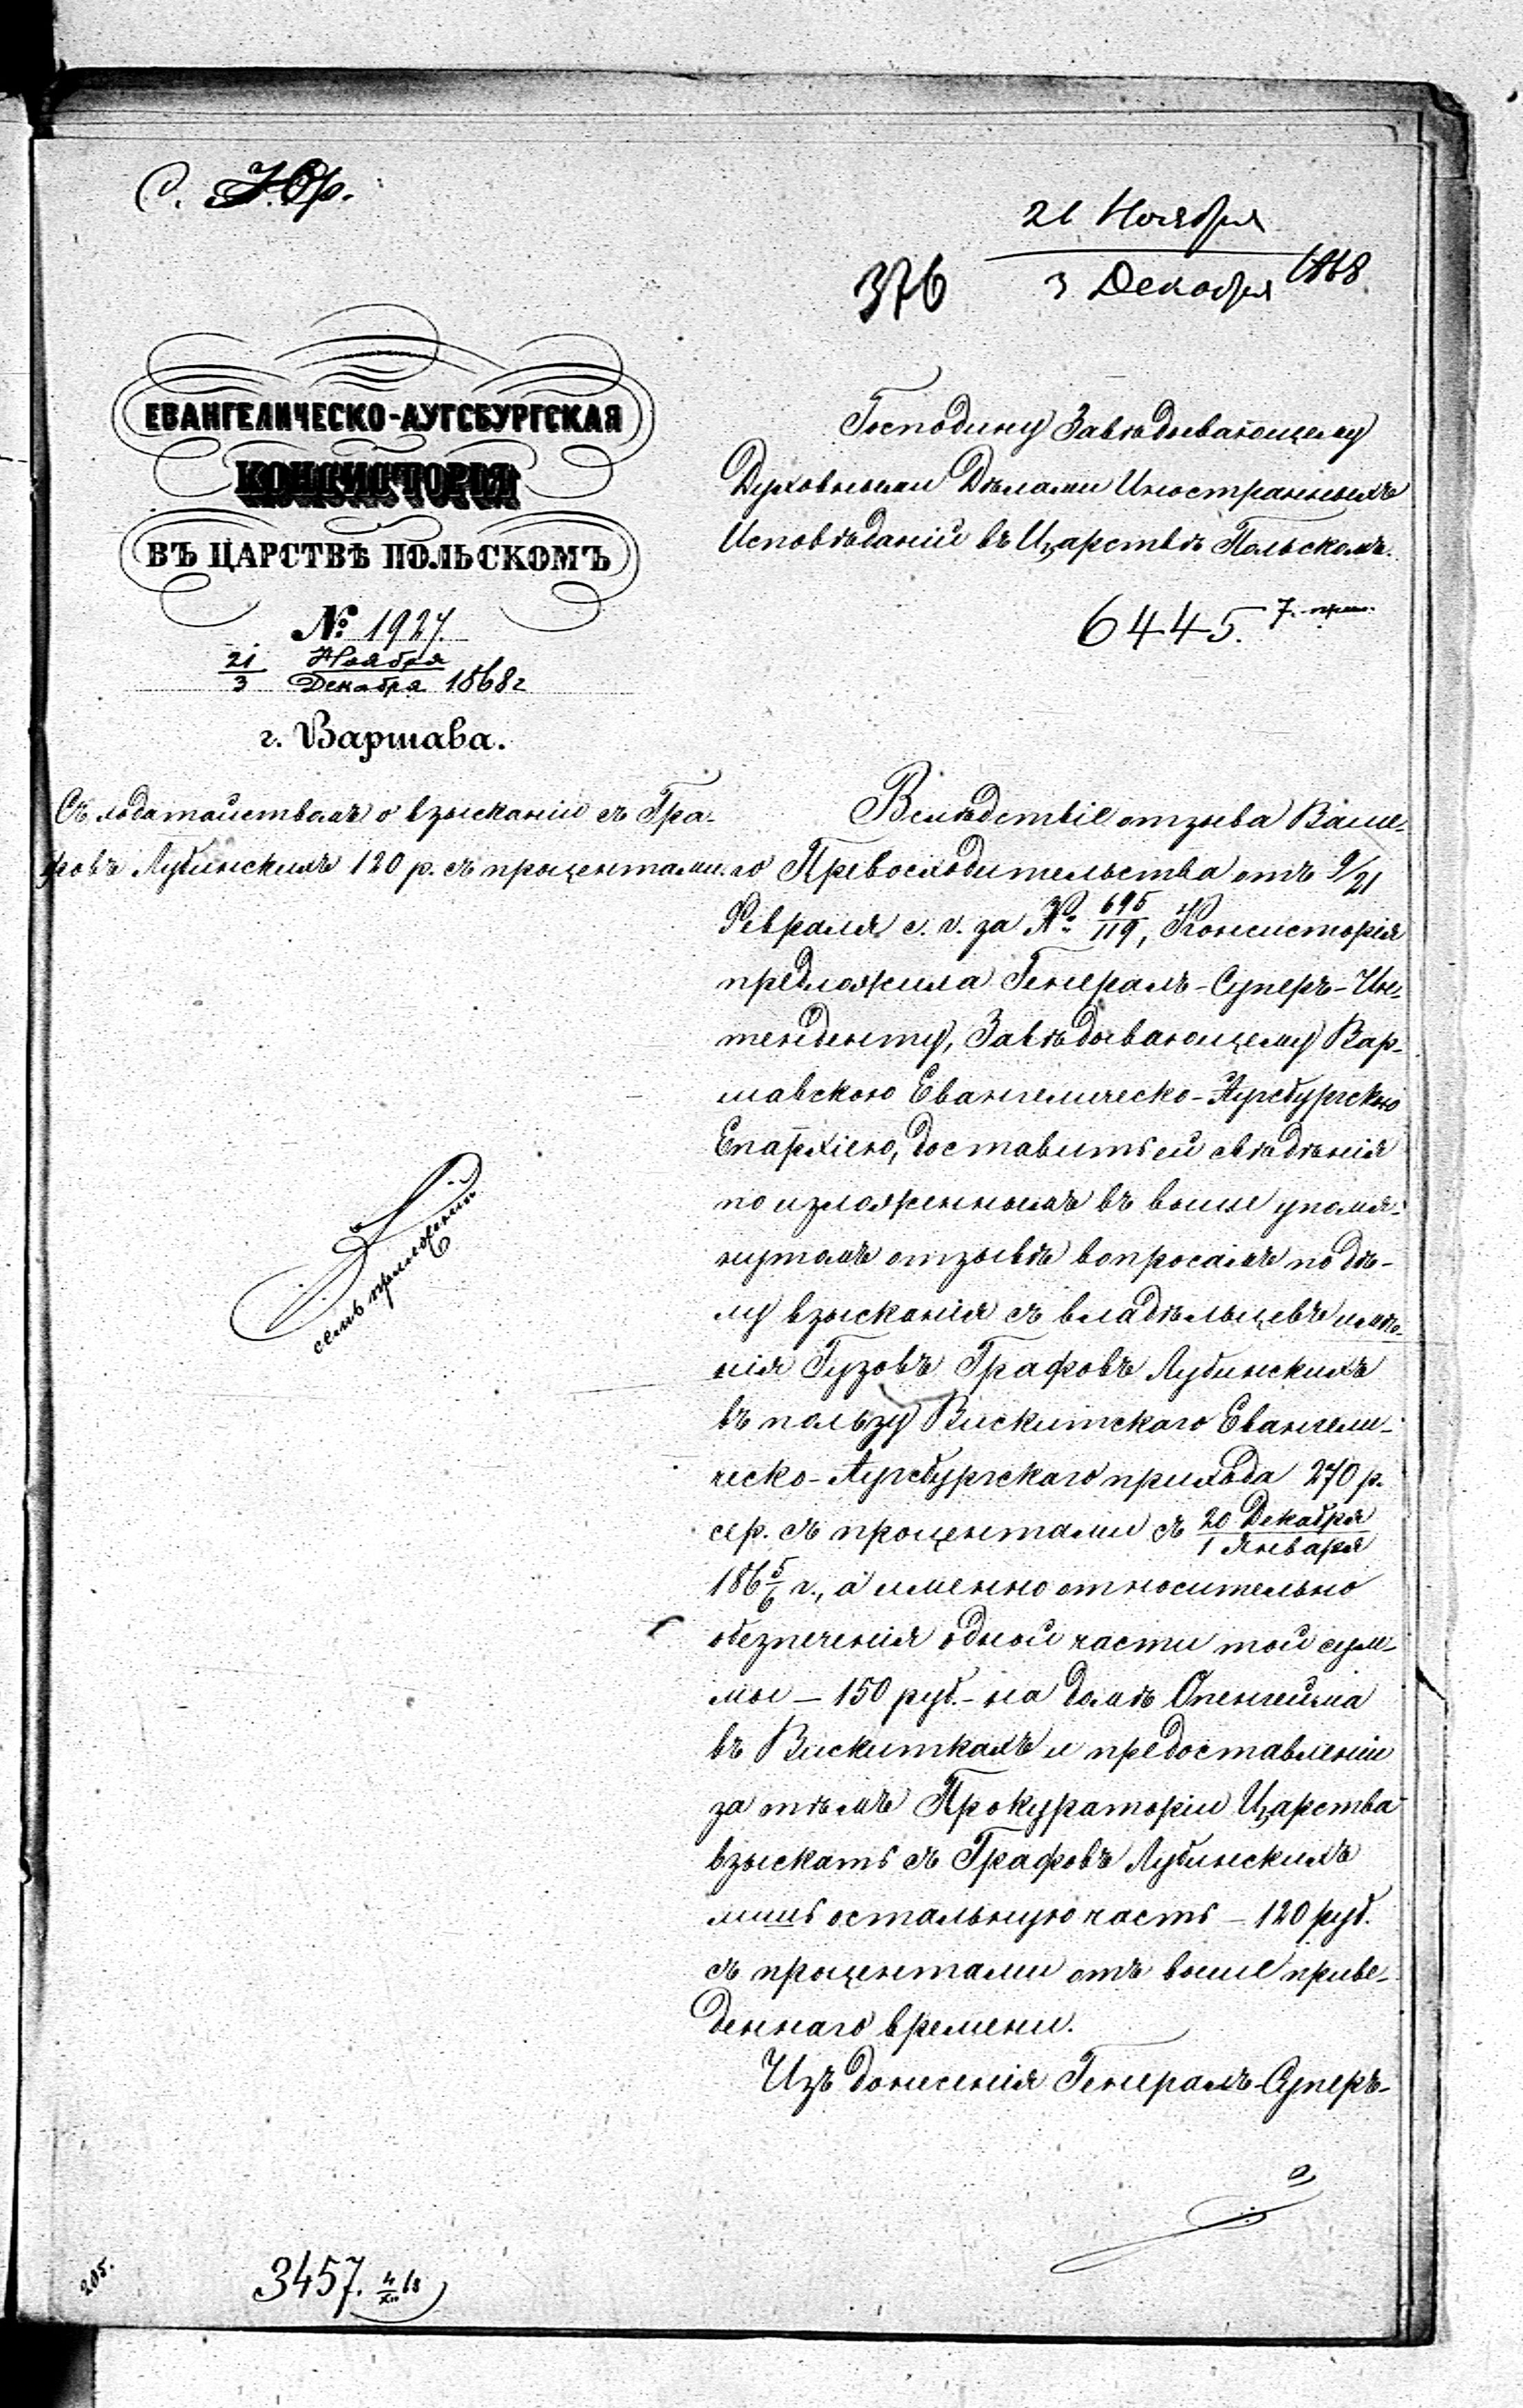 С. Юр.
21 Ноября
3 Декабря 1868.
376
ЕВАНГЕЛИЧЕСКО-АУГСБУРГСКАЯ
КОНСИСТОРІЯ
ВЪ ЦАРСТВѢ ПОЛЬСКОМЪ
№ 1927.
21 Ноября
3 Декабря 1868 г
г. Варшава.
Съ ходатайствомъ о взысканіи съ Гра-
фовъ Лубинскихъ 120 р. съ процентами.
семь приложеній
Господину Завѣдывающему
Духовными Дѣлами Иностранныхъ
Исповѣданій въ Царствѣ Польскомъ.
6445. 7. прил.
Вслѣдствіе отзыва Ваше-
го Превосходительства отъ 9/21
Февраля с. г. за № 695/119, Консисторія
предложила Генералъ-Суперъ-Ин-
тенденту, Завѣдывающему Вар-
шавскою Евангелическо-Аугсбургскою
Епархіею, доставить ей свѣдѣнія
по изложеннымъ въ выше упомя-
нутомъ отзывѣ вопросамъ по дѣ-
лу взысканія съ владѣльцевъ имѣ-
нія Гузовъ Графовъ Лубинскихъ
въ пользу Вискитскаго Евангели-
ческо-Аугсбургскаго прихода 270 р.
сер. съ процентами съ 20 Декабря/1 Января
186 5/6 г., а именно относительно
обезпеченія одной части той сум-
мы — 150 руб. — на домѣ Опенгейма
въ Вискиткахъ и предоставленіи
за тѣмъ Прокураторіи Царства
взыскать съ Графовъ Лубинскихъ
лишь остальную часть — 120 руб.
съ процентами отъ выше приве-
деннаго времени.
Изъ донесенія Генералъ-Суперъ-
205.
3457. 4/XII 68